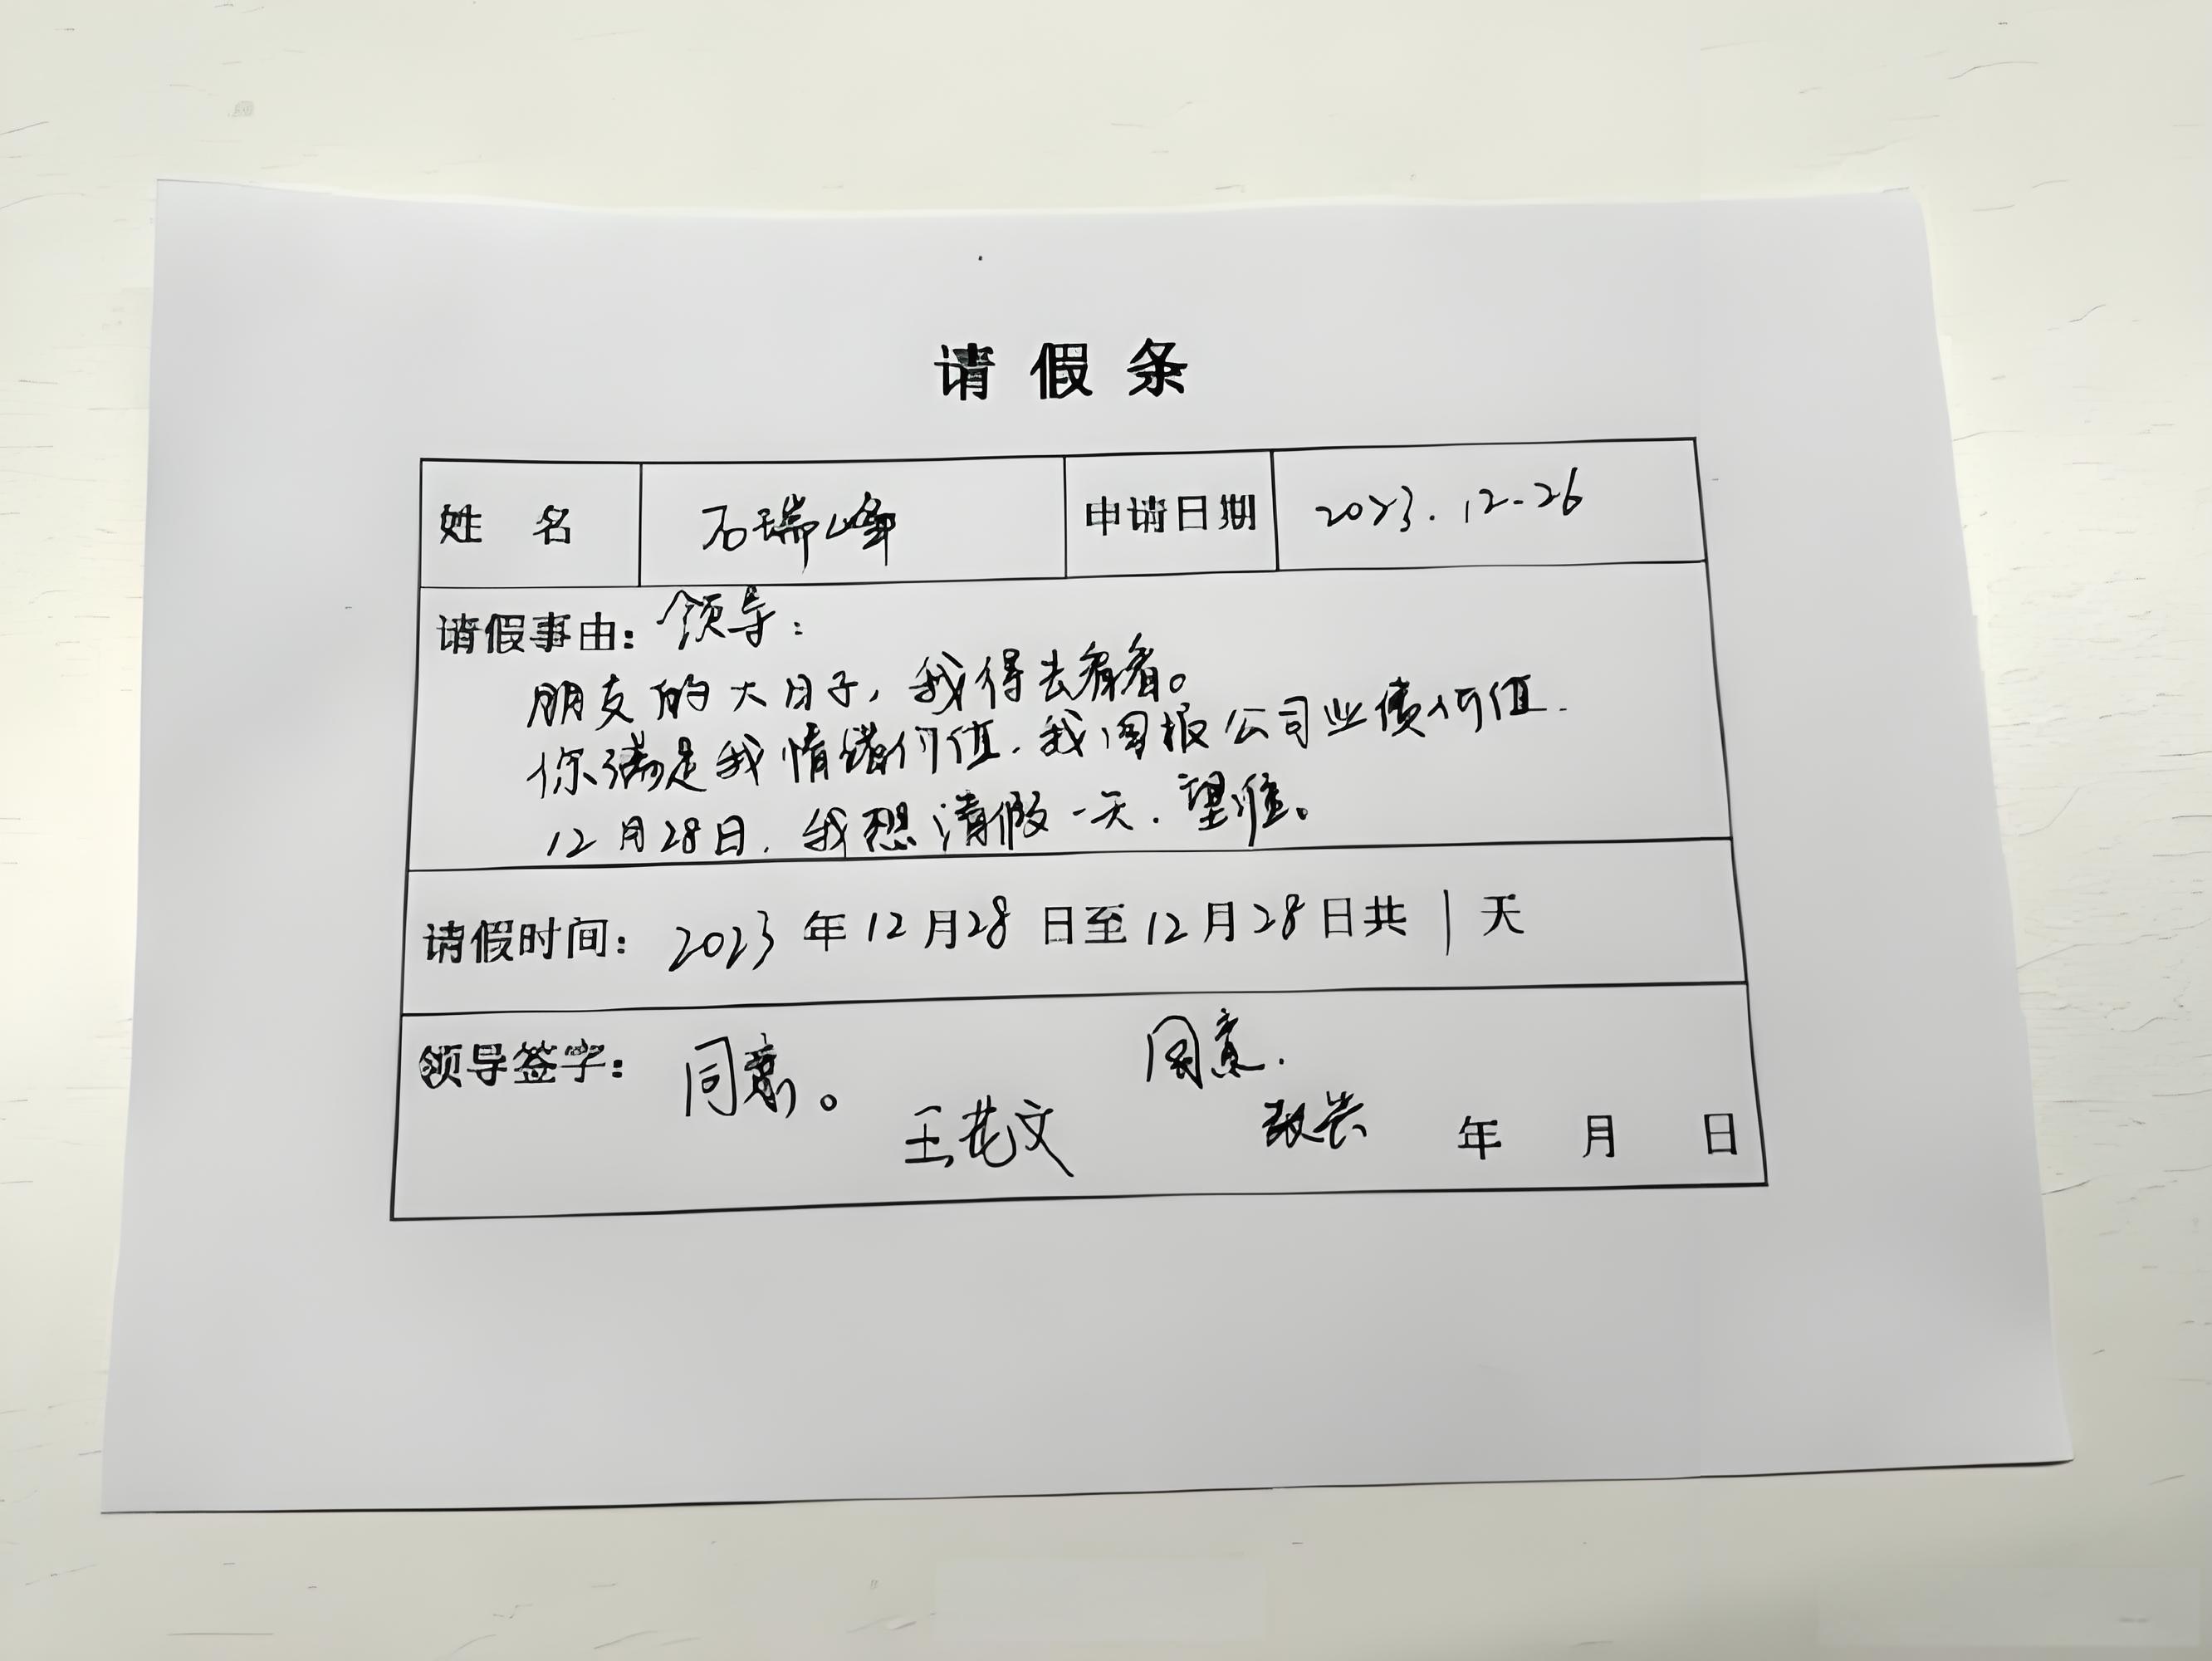 请假条
姓 名 石瑞峰 申请日期 2023.12-26
请假事由：领导：
朋友的大日子，我得去看看。
你满足我情绪价值，我回报公司业绩价值.
12月28日，我想请假一天.望准。
请假时间：2023年12月28日至12月28日共1天
领导签字：同意。 同意.
王艺文 年 月 日